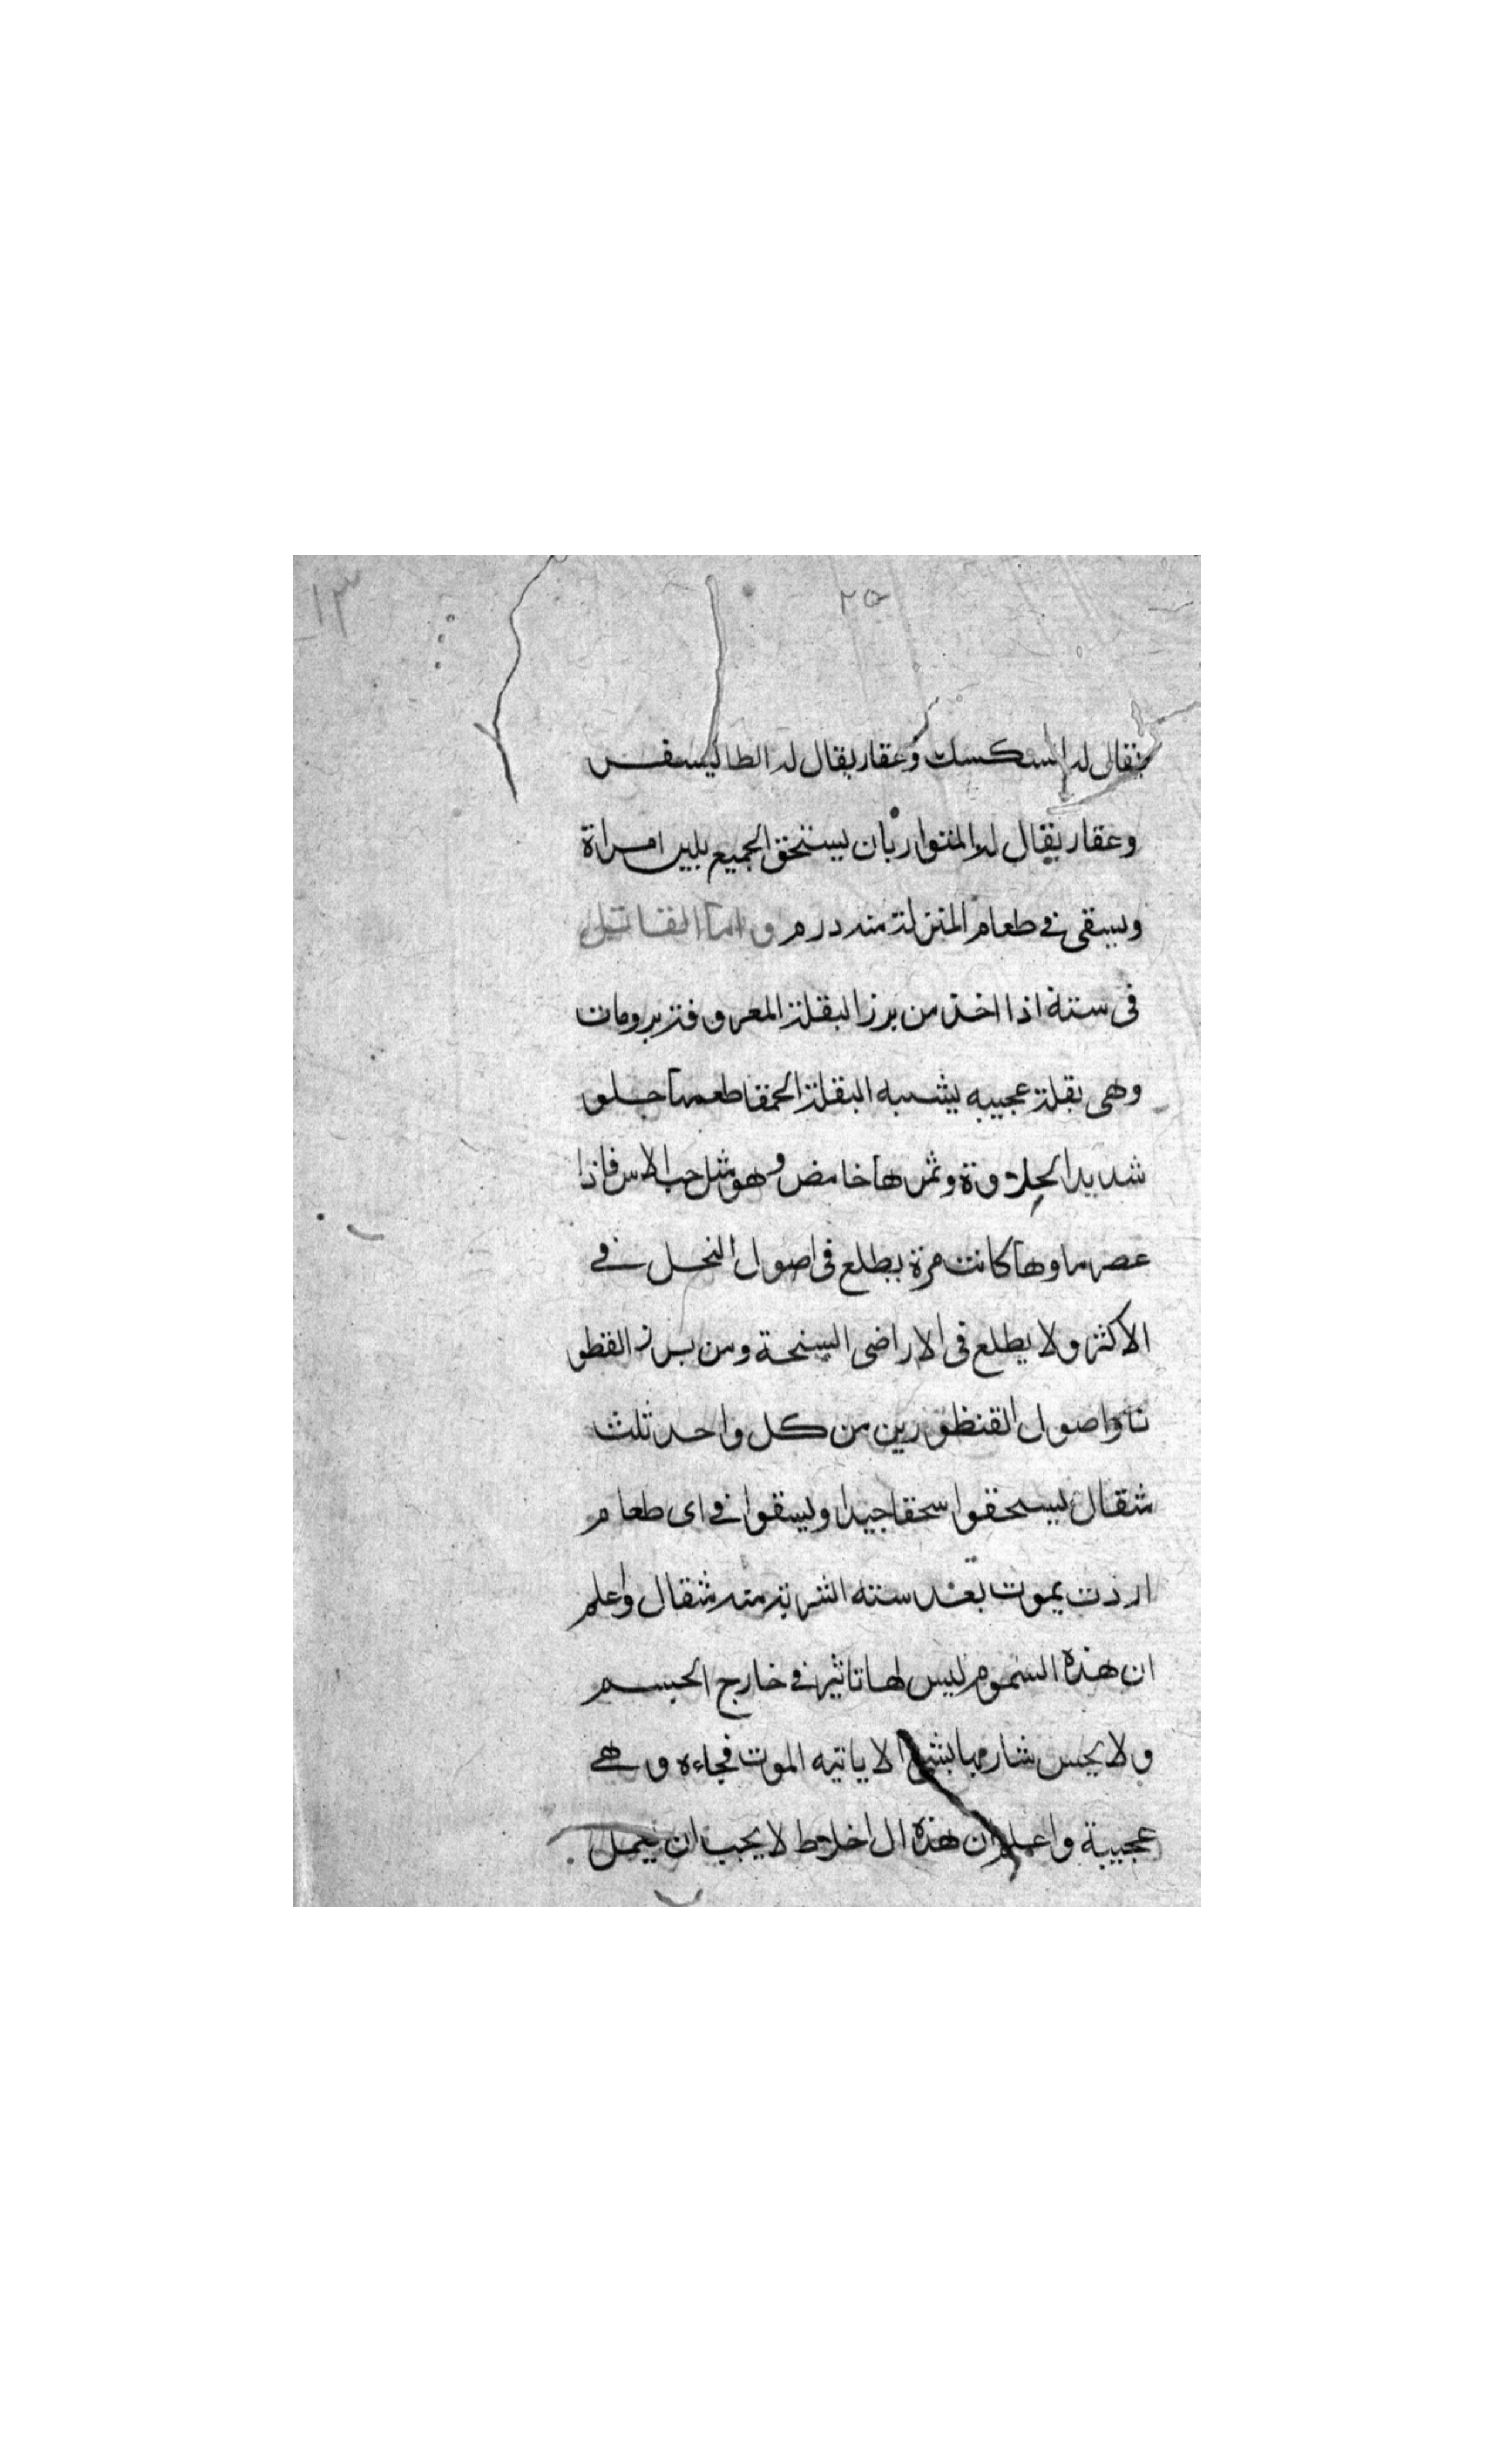 ١٣
٢٥
يقال له السكسك وعقار يقال له الطاليسفس
وعقار يقال له المننوار بان يستحق الجميع بلبن امراة
ويسقى فى طعام المنزلة منه درم واما القاتل
فى ستة اذا اخذ من برز البقلة المعروفة برومات
وهى بقلة عجيبه يشبه البقلة الحمقا طعمها حلو
شديدا الحلاوة وثمرها خامض وهو مثل حب الاس فاذا
عصر ماوها كانت مزة يطلع فى اصول النخل فى
الاكثر ولا يطلع فى الاراضى السنحة ومن برز القطو
نا واصول القنطورين من كل واحد ثلث
مثقال يسحقوا سحقا جيدا ويسقوا فى اى طعام
اردت يموت بعد سنته الشربة منه مثقال واعلم
ان هذه السموم ليس لها تاثير فى خارج الجسم
ولا يحس شاربها بشى الا ياتيه الموت فجاءه وهى
عجيبة واعلم ان هذه ال اخلاط لا يجب ان يعمل